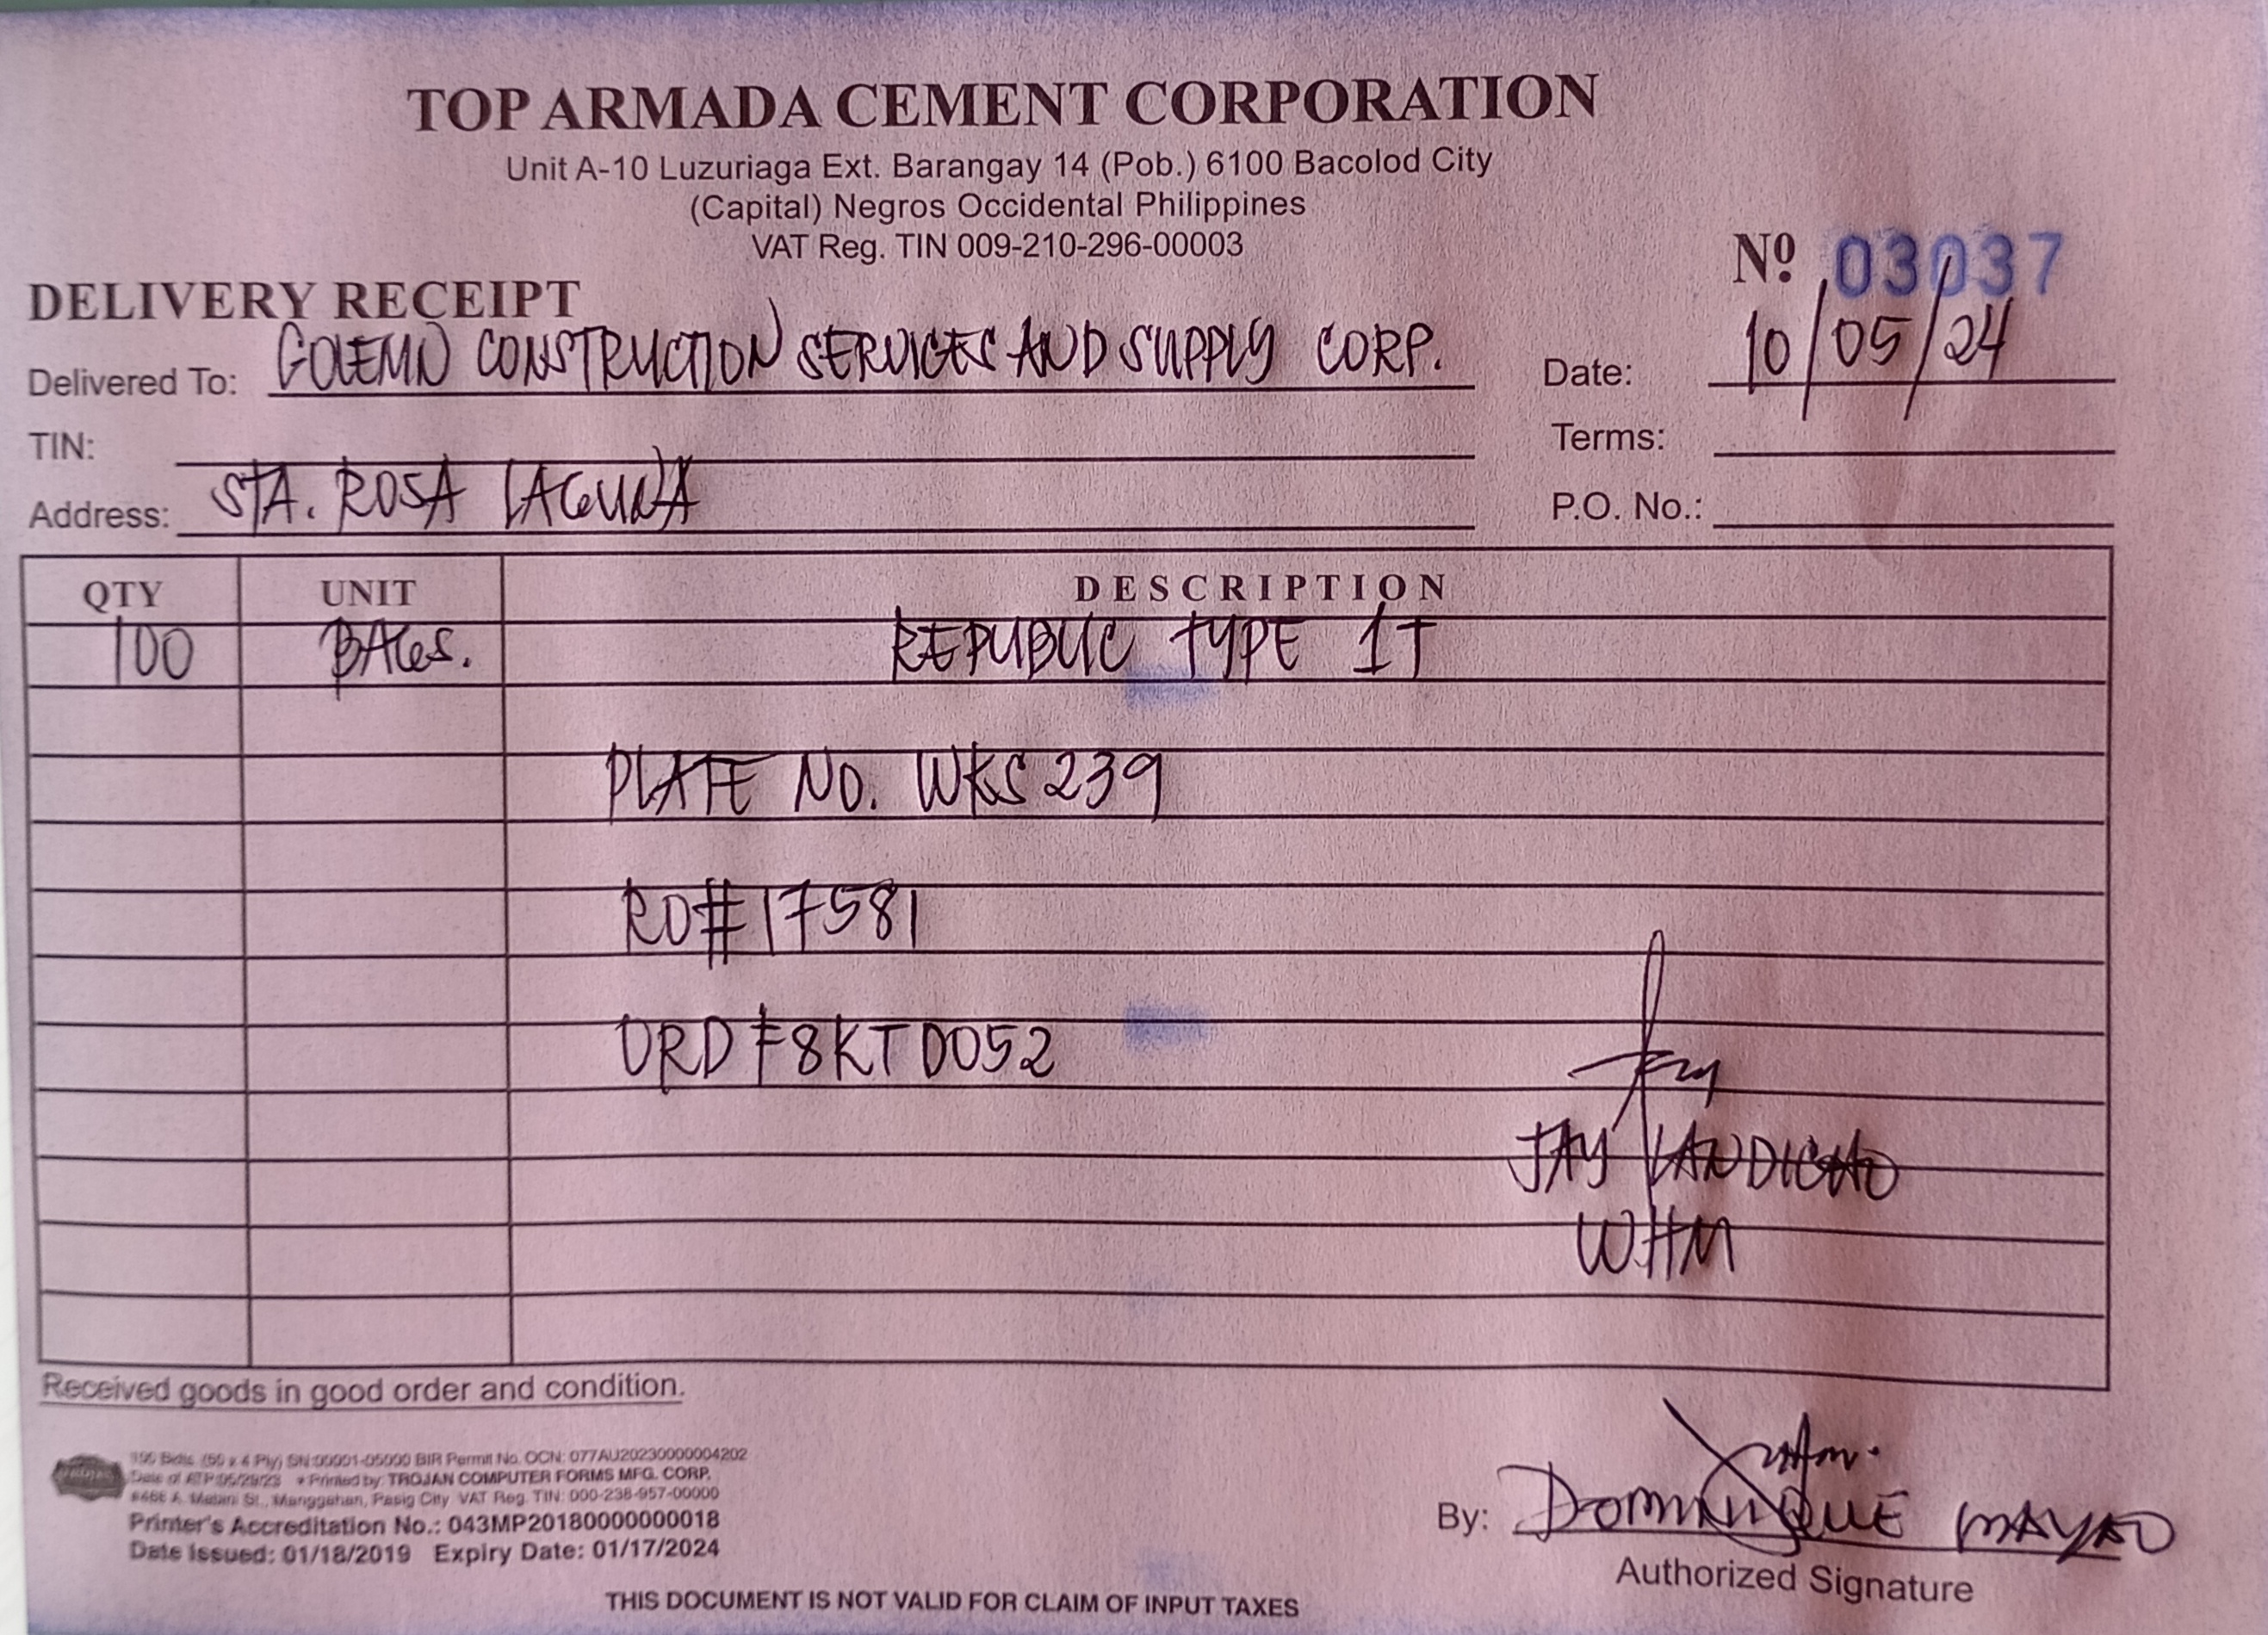 TOP ARMADA CEMENT CORPORATION
Unit A-10 Luzuriaga Ext. Barangay 14 (Pob.) 6100 Bacolod City
(Capital) Negros Occidental Philippines
VAT Reg. TIN 009-210-296-00003
Nº 03037
DELIVERY RECEIPT
Delivered To: GOLEMN CONSTRUCTION SERVICES AND SUPPLY CORP. Date: 10/05/24
TIN: Terms:
Address: STA. ROSA LAGUNA P.O. No.:
QTY UNIT DESCRIPTION
100 BAGS. REPUBLIC TYPE 1T
PLATE NO. WKS 239
RO#17581
ORDF8KTD052
JAY LANDICHO
WHM
Received goods in good order and condition.
100 Bdls. (50 x 4 Ply) SN:00001-05000 BIR Permit No. OCN: 077AU20230000004202
Date of ATP:05/29/23 * Printed by: TROJAN COMPUTER FORMS MFG. CORP.
St., Manggahan, Pasig City VAT Reg. TIN: 000-238-957-00000
Printer's Accreditation No.: 043MP20180000000018
Date Issued: 01/18/2019 Expiry Date: 01/17/2024
By: DOMINIQUE MAYAO
Authorized Signature
THIS DOCUMENT IS NOT VALID FOR CLAIM OF INPUT TAXES